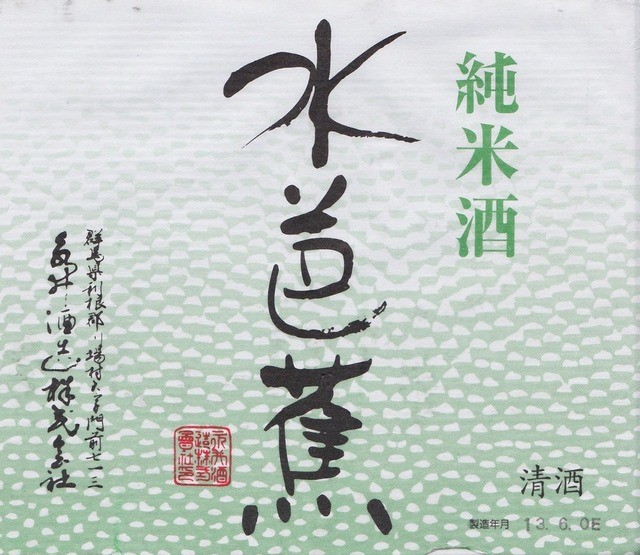 純米酒
水芭蕉
群馬県利根郡川場村大字門前七一三
永井酒造株式会社
永井酒造株式会社之印
清酒
製造年月 13.6.0E